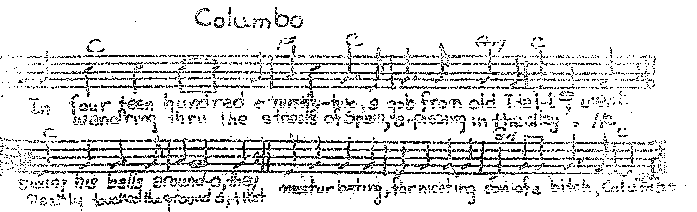 Columbo
C F C G7 C
In four teen hundred & ninety-two, a gob from old It-a-ly, went
wandring thru the streets of Spain, a-pissing in the alley. He
C G7 C
swung his balls around-o, they masturbating, fornicating son of a bitch, Columbo
nearly touched the ground-o, that